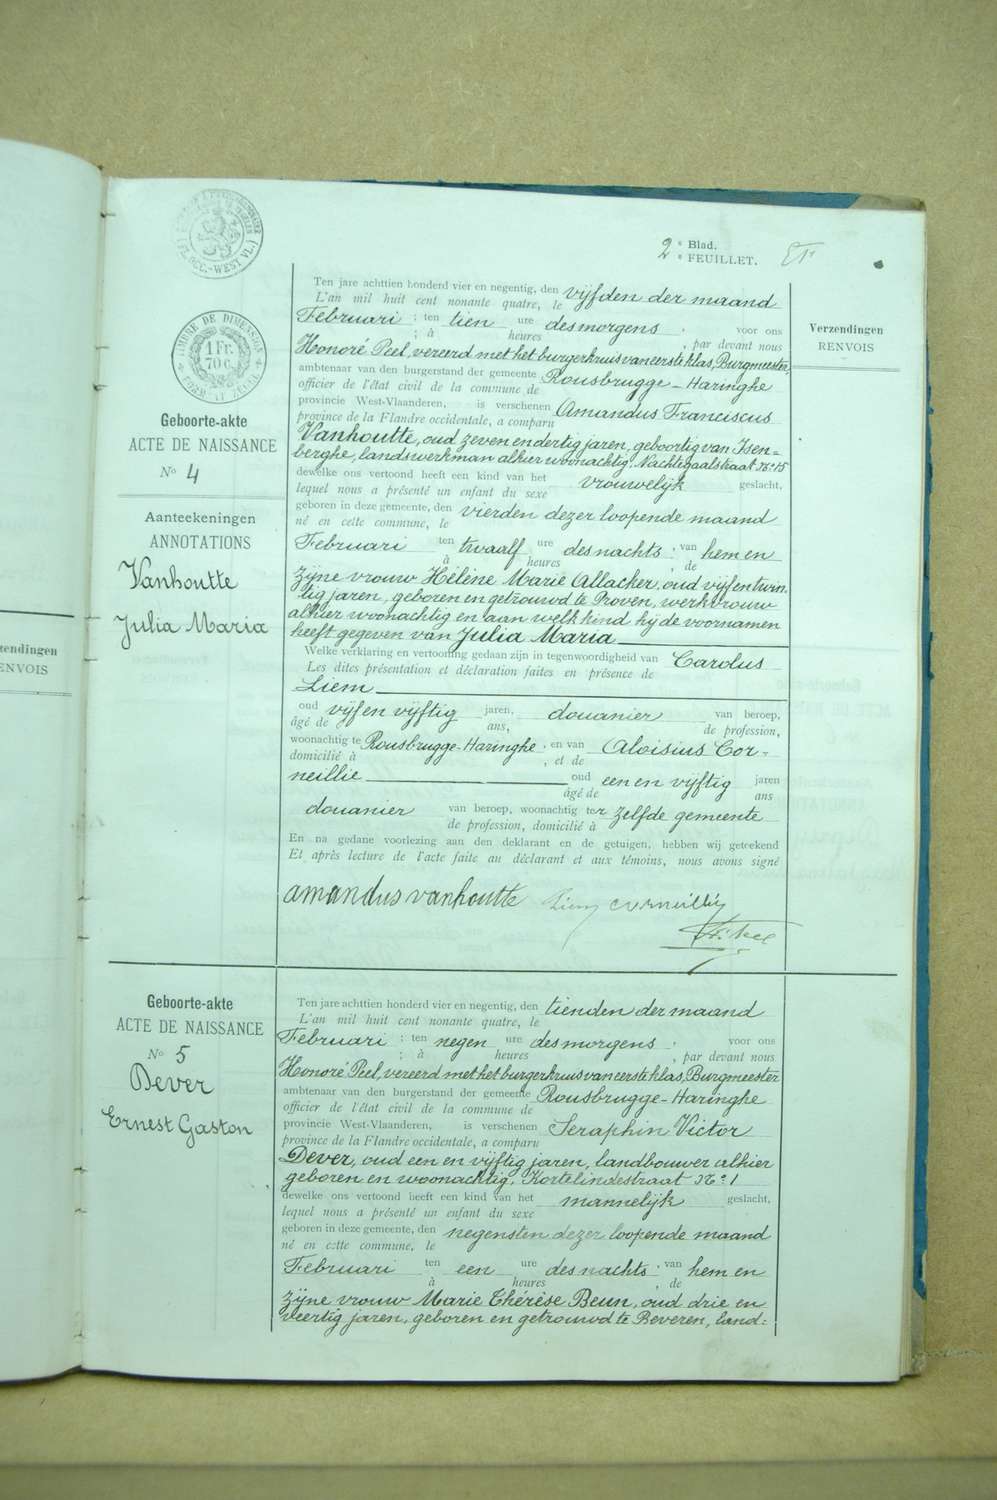 2e Blad.
2e FEUILLET.
(FL. OCC.-WEST VL.)
TIMBRE DE DIMENSION
1 Fr.
70 c.
Verzendingen
RENVOIS
Geboorte-akte
ACTE DE NAISSANCE
No 4
Aanteekeningen
ANNOTATIONS
Vanhoutte
Julia Maria
Ten jare achttien honderd vier en negentig, den vijfden der maand
L'an mil huit cent nonante quatre, le
Februari ; ten tien ure des morgens ; voor ons
; à heures , par devant nous
Honoré Peel, vereerd met het burgerkruis van eerste klas, Burgmeester,
ambtenaar van den burgerstand der gemeente Rousbrugge-Haringhe
officier de l'état civil de la commune de
provincie West-Vlaanderen, is verschenen Amandus Franciscus
province de la Flandre occidentale, a comparu
Vanhoutte, oud zeven en dertig jaren, geboortig van Isen=
berghe, landswerkman alhier woonachtig. Nachtegaalstraat No 15
dewelke ons vertoond heeft een kind van het vrouwelijk geslacht,
lequel nous a présenté un enfant du sexe
geboren in deze gemeente, den vierden dezer loopende maand
né en cette commune, le
Februari ten twaalf ure des nachts ; van hem en
à heures , de
zijne vrouw Hélène Marie Allacker, oud vijf en twin-
tig jaren, geboren en getrouwd te Proven, werkvrouw
alhier woonachtig en aan welk kind hij de voornamen
heeft gegeven van Julia Maria
Welke verklaring en vertooning gedaan zijn in tegenwoordigheid van Carolus
Les dites présentation et déclaration faites en présence de
Liem
oud vijf en vijftig jaren, douanier van beroep,
âgé de ans, de profession,
woonachtig te Rousbrugge-Haringhe ; en van Aloisius Cor=
domicilié à , et de
neillie oud een en vijftig jaren
âgé de ans
douanier van beroep, woonachtig ter zelfde gemeente
de profession, domicilié à
En na gedane voorlezing aan den deklarant en de getuigen, hebben wij geteekend
Et après lecture de l'acte faite au déclarant et aux témoins, nous avons signé
amandus vanhoutte Liem corneillie
H. Peel
Geboorte-akte
ACTE DE NAISSANCE
No 5
Dever
Ernest Gaston
Ten jare achttien honderd vier en negentig, den tienden der maand
L'an mil huit cent nonante quatre, le
Februari ; ten negen ure des morgens ; voor ons
; à heures , par devant nous
Honoré Peel, vereerd met het burgerkruis van eerste klas, Burgmeester
ambtenaar van den burgerstand der gemeente Rousbrugge-Haringhe
officier de l'état civil de la commune de
provincie West-Vlaanderen, is verschenen Seraphin Victor
province de la Flandre occidentale, a comparu
Dever, oud een en vijftig jaren, landbouwer alhier
geboren en woonachtig. Kortelindestraat No 1
dewelke ons vertoond heeft een kind van het mannelijk geslacht,
lequel nous a présenté un enfant du sexe
geboren in deze gemeente, den negensten dezer loopende maand
né en cette commune, le
Februari ten een ure des nachts ; van hem en
à heures , de
zijne vrouw Marie Thérèse Beun, oud drie en
veertig jaren, geboren en getrouwd te Beveren, land=
zendingen
ENVOIS